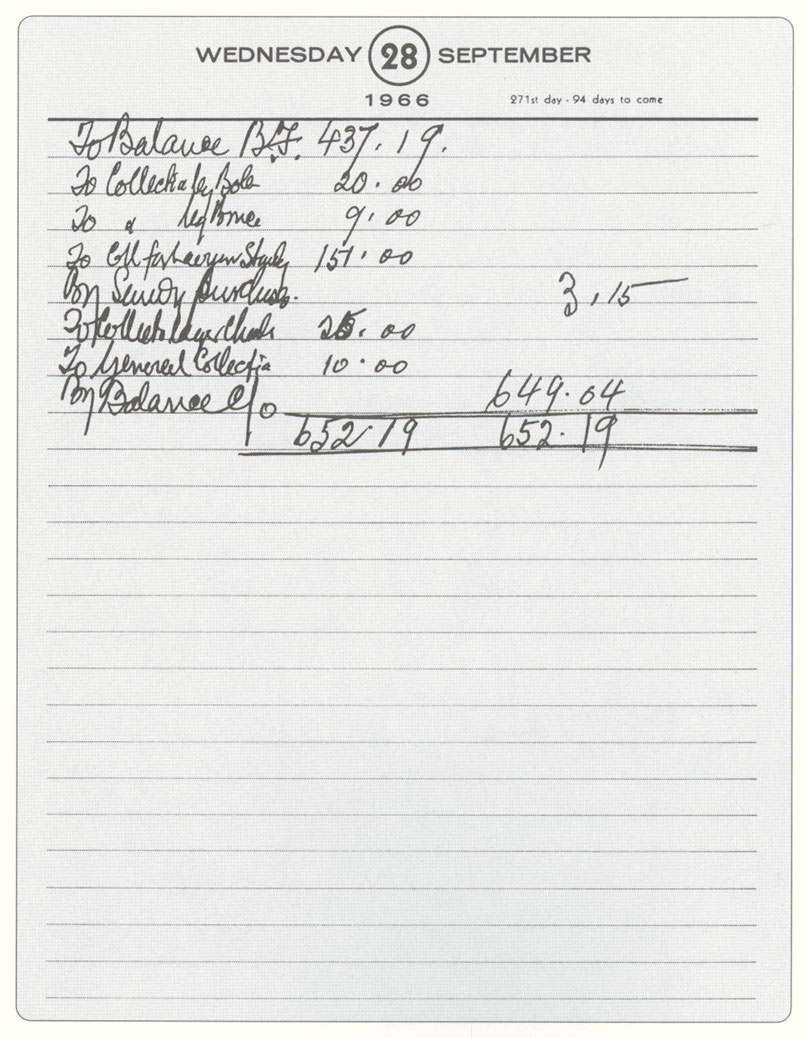 WEDNESDAY 28 SEPTEMBER
1966 271st day - 94 days to come
To Balance B.F. 437.19.
To by 20.00
To " by 9.00
To Coll for 151.00
By Sundry 3.15
To 25.00
To General Collectio 10.00
By Balance C/o 649.04
652.19 652.19